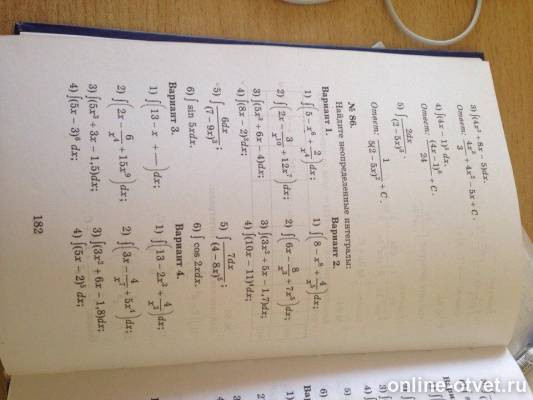 3) ∫(4x³ + 8x − 5)dx.
Ответ: 4x²/3 + 4x² − 5x + C.
4) ∫(4x − 1)⁵ dx.
Ответ: (4x − 1)⁶/24 + C.
5) ∫ 2dx/(2 − 5x)³.
Ответ: 1/5(2 − 5x)² + C.
№ 86.
Найдите неопределенные интегралы:
Вариант 1.
1) ∫(5 − x⁶ + 2/x⁴)dx;
2) ∫(2x − 3/x¹⁰ + 12x⁷)dx;
3) ∫(5x² + 6x − 4)dx;
4) ∫(8x − 2)⁷dx;
5) ∫ 6dx/(7 − 9x)³;
6) ∫ sin 5xdx.
Вариант 2.
1) ∫(8 − x⁸ + 4/x⁵)dx;
2) ∫(6x − 8/x³ + 7x⁵)dx;
3) ∫(3x² + 5x − 1,7)dx;
4) ∫(10x − 11)⁷dx;
5) ∫ 7dx/(4 − 8x)⁵;
6) ∫ cos 2xdx.
Вариант 3.
1) ∫(13 − x +
2) ∫(2x − 6/x⁴ + 15x⁹)dx;
3) ∫(5x² + 3x − 1,5)dx;
4) ∫(5x − 3)⁵ dx;
Вариант 4.
1) ∫(13 − 2x³ + 4/x³)dx;
2) ∫(3x − 4/x⁷ + 5x⁴)dx;
3) ∫(3x² + 6x − 1,8)dx;
4) ∫(5x − 2)⁵ dx;
182
online-otvet.ru